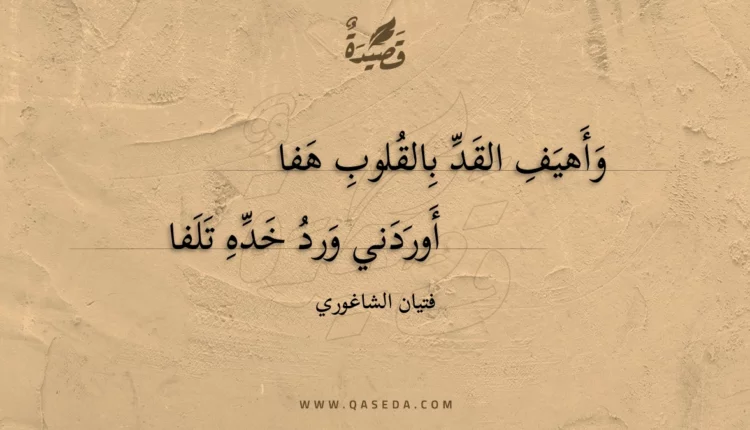 قَصِيْدَةٌ
وَأَهيَفِ القَدِّ بِالقُلوبِ هَفا
أَورَدَني وَردُ خَدِّهِ تَلَفا
فتيان الشاغوري
WWW.QASEDA.COM